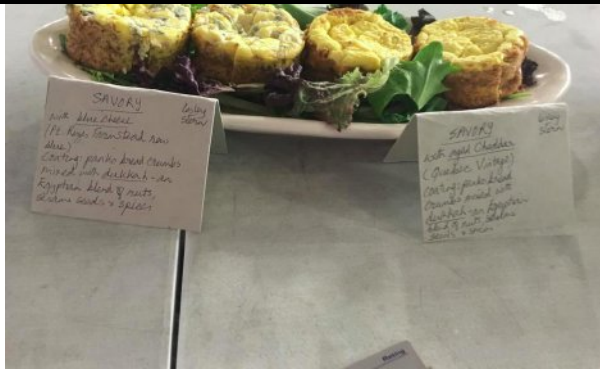 SAVORY
with blue cheese
(Pt. Reyes Farmstead raw
blue)
Coating: panko bread crumbs
mixed with dukkah - an
Egyptian blend of nuts,
sesame seeds & spices
SAVORY
with aged Cheddar
(Quebec Vintage)
Coating: panko bread
crumbs mixed with
dukkah - an Egyptian
blend of nuts, sesame
seeds & spices